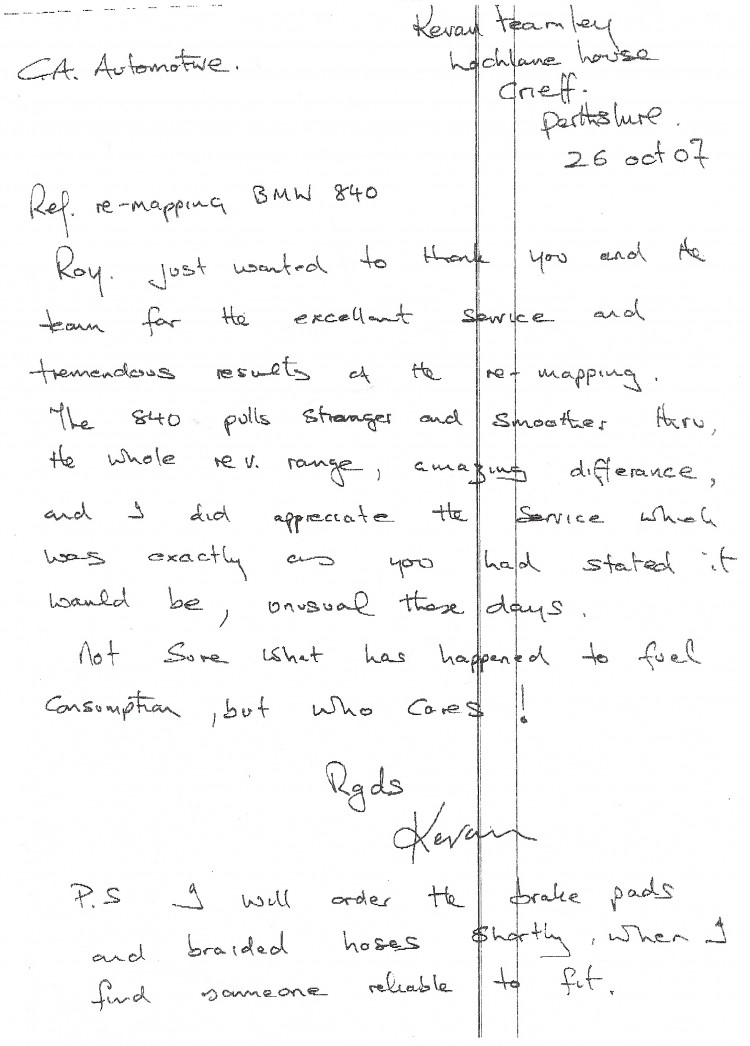 Kevan Tearnley
Lochlane house
C.A. Automotive.
Crieff.
Perthshire.
26 oct 07
Ref. re-mapping BMW 840
Roy. Just wanted to thank you and the
team for the excellant service and
tremendous results of the re-mapping.
The 840 pulls stronger and smoother thru,
the whole rev. range, amazing differance,
and I did appreciate the service which
was exactly as you had stated it
would be, unusual these days.
Not sure what has happened to fuel
consumption, but who cares!
Rgds
Kevan
P.S I will order the brake pads
and braided hoses shortly, when I
find someone reliable to fit.